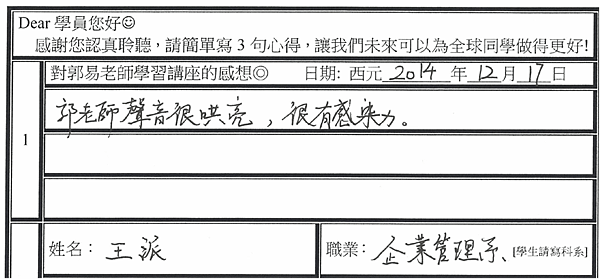 Dear 學員您好☺
感謝您認真聆聽，請簡單寫 3 句心得，讓我們未來可以為全球同學做得更好!
對郭易老師學習講座的感想◎ 日期: 西元 2014 年 12 月 17 日
1
郭老師聲音很哄亮，很有感染力。
姓名： 王派
職業： 企業管理系、[學生請寫科系]